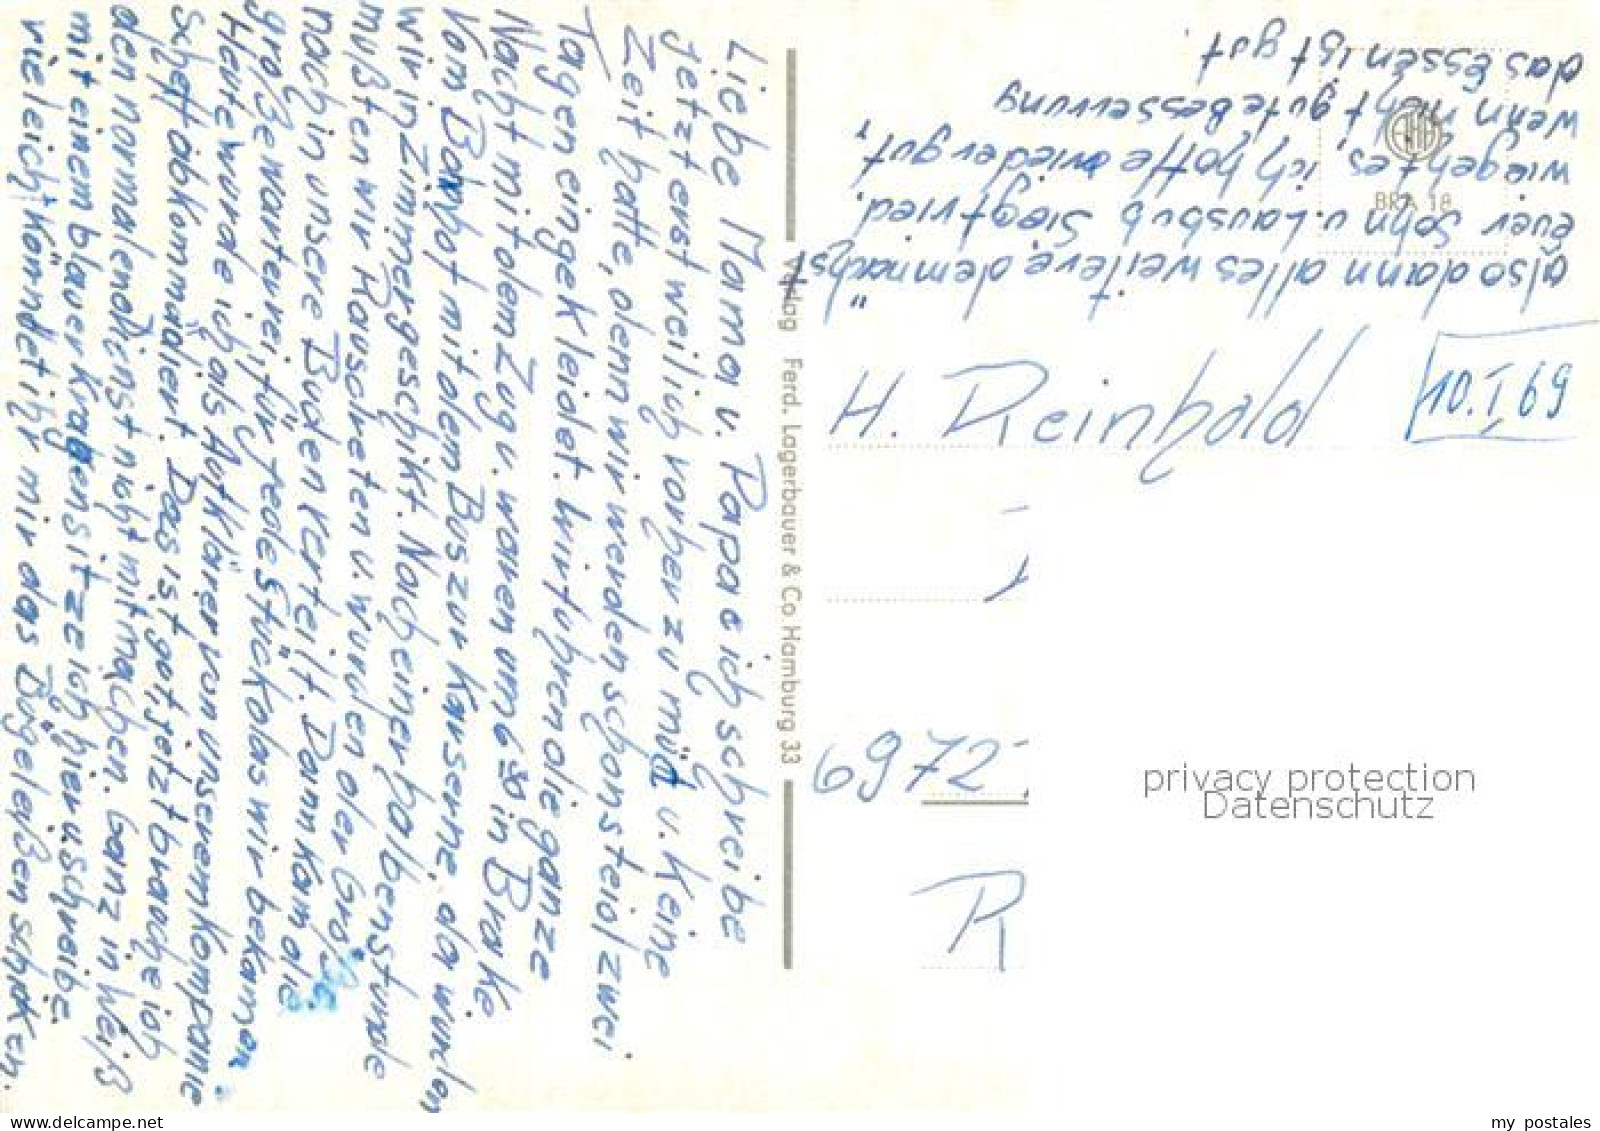 Liebe Mama u. Papa ich schreibe
jetzt erst weilich vorher zu müd u. keine
Zeit hatte, denn wir werden schon steid zwei
Tagen eingekleidet. Wir fuhren die ganze
Nacht mit dem Zug u. waren um 6 30 in Brake
Vom Bahnhof mit dem Bus zur Kaserne, da wurden
wir in Zimmer geschikt. Nach einer halben stunde
mußten wir Rauscheten u. wurden der Größe
nach in unsere Buden verteilt. Dann kam die
große warterei, für jedes Stück das wir bekamen
Heute wurde ich als Aufklärer von unserem Kompanie
scheff abkommadiert. Das ist gut, jetzt brauche ich
den normalen dienst nicht mitmachen. Ganz in Weiß
mit einem blauer Kragen sitze ich hier u. schreibe.
vieleicht könnet ihr mir das Bügeleißen schicken.
also dann alles weitere demnächst
euer Sohn u. Lausbub Siegfried.
wie geht es, ich hoffe wieder gut,
wenn nicht gute Besserung
das Essen ist gut.
Verlag Ferd. Lagerbauer & Co Hamburg 33
AHA
BRA 18
10. I. 69
H. Reinhold
6972
R
privacy protection
Datenschutz
my postales